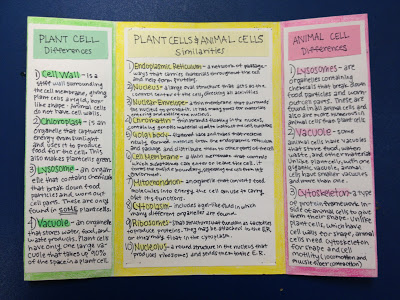 PLANT CELL
Differences
1) Cell Wall - is a
stiff wall surrounding
the cell membrane, giving
plant cells a rigid, box-
like shape. Animal cells
do not have cell walls.
2) Chloroplast - is an
organelle that captures
energy from sunlight
and uses it to produce
food for the cell. This
also makes plants green.
3) Lysosome - an organ-
elle that contains chemicals
that break down food
particles and worn out
cell parts. These are only
found in some plant cells.
4) Vacuole - an organelle
that stores water, food, and
waste products. Plant cells
have only one large vac-
uole that takes up 90%
of the space in a plant cell.
PLANT CELLS & ANIMAL CELLS
Similarities
1) Endoplasmic Reticulum - a network of passage-
ways that carries materials throughout the cell
and help form proteins.
2) Nucleus - a large oval structure that acts as the
control center of the cell, directing all activities
3) Nuclear Envelope - a thin membrane that surrounds
the nucleus to protect it. It has many pores for materials
entering and exiting the nucleus.
4) Chromatin - thin strands floating in the nucleus,
containing genetic material
5) Golgi body - flattened sacs and tubes that receive
newly formed materials from the endoplasmic reticulum
and package and distribute them to other parts of the cell
6) Cell Membrane - a thin membrane that controls
which substances can enter or leave the cell. It
forms the outside boundary, separating the cell from its
environment.
7) Mitochondrion - an organelle that converts food
molecules into energy the cell can use to carry
out its functions.
8) Cytoplasm - includes a gel-like fluid in which
many different organelles are found.
9) Ribosomes - small grain-like organelles that function as factories
to produce proteins. They may be attached to the ER
or may float in the cytoplasm.
10) Nucleolus - a round structure in the nucleus that
produces ribosomes and sends them to the ER.
ANIMAL CELL
Differences
1) Lysosomes - are
organelles containing
chemicals that break down
food particles and worn-
out cell parts. These are
found in all animal cells and
also are more numerous in
animal cells than plant cells.
2) Vacuole - some
animal cells have vacuoles
that store food, water,
waste, and other materials.
Unlike plant cells, with one
gigantic vacuole, animal
cells have smaller vacuoles
and more than one.
3) Cytoskeleton - a type
of protein framework in-
side animal cells to give
them their shape. Unlike
plant cells, which have
cell walls for shape, animal
cells need cytoskeleton
for shape and cell
motility (locomotion and
muscle fiber contraction)